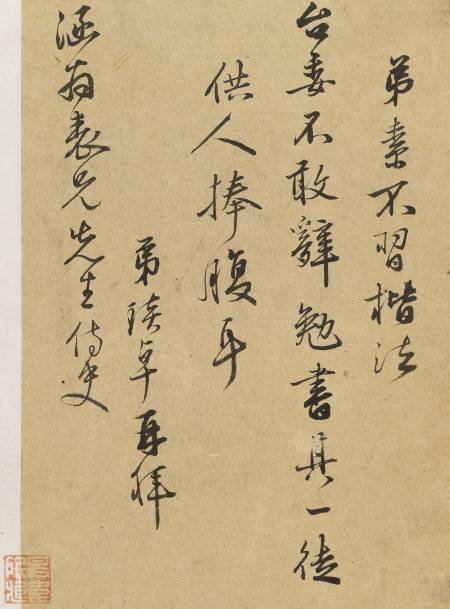 弟素不習楷法
台委不敢辭勉書其一徒
供人捧腹耳
弟卓再拜
涵翁表兄先生侍史